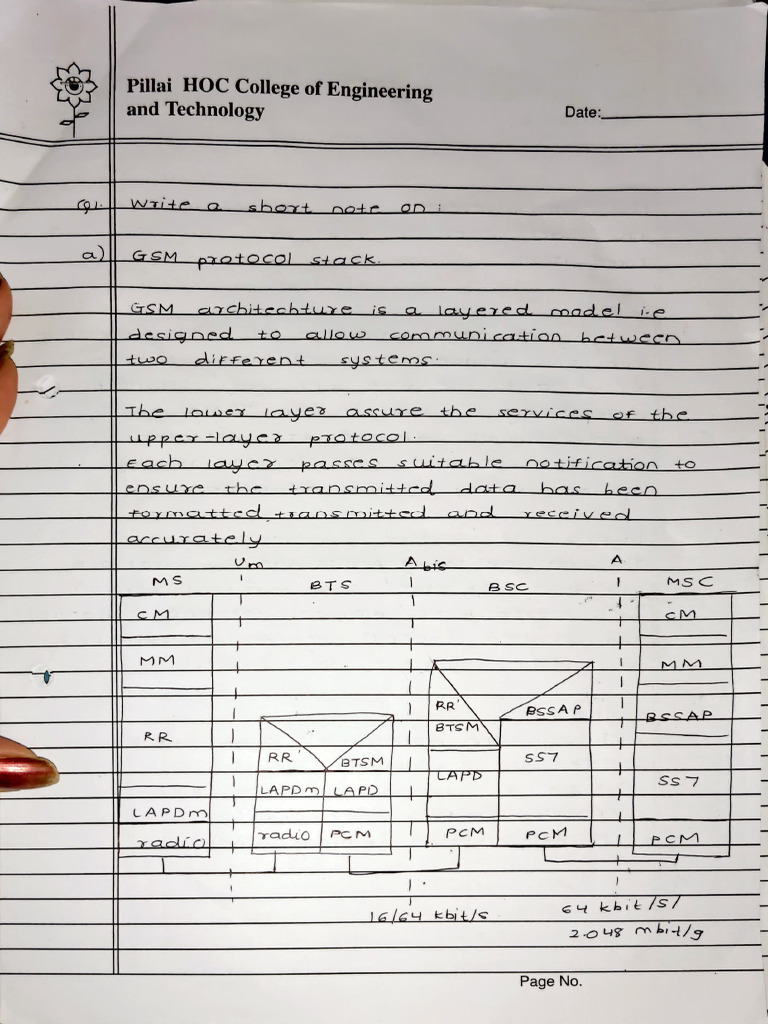 Pillai HOC College of Engineering
and Technology
Date:
Q1. Write a short note on :
a) GSM protocol stack.
GSM architechture is a layered model i.e
designed to allow communication between
two different systems.
The lower layer assure the services of the
upper-layer protocol.
Each layer passes suitable notification to
ensure the transmitted data has been
formatted, transmitted and received
accurately
Um Abis A
MS BTS BSC MSC
CM CM
MM MM
RR' BSSAP BSSAP
BTSM
RR
RR' BTSM SS7
LAPD SS7
LAPDm LAPD
LAPDm
radio radio PCM PCM PCM PCM
16/64 kbit/s 64 kbit/s/
2.048 mbit/s
Page No.